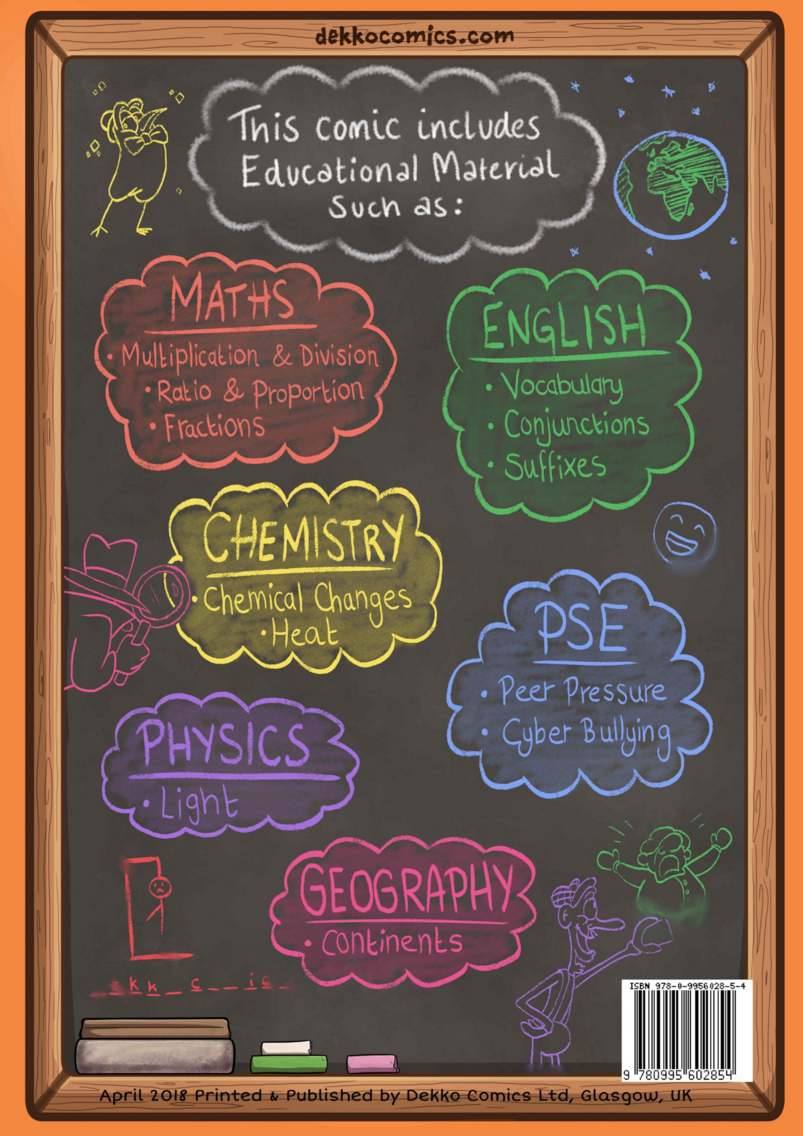 dekkocomics.com
This comic includes
Educational Material
Such as:
MATHS
• Multiplication & Division
• Ratio & Proportion
• Fractions
ENGLISH
• Vocabulary
• Conjunctions
• Suffixes
CHEMISTRY
• Chemical Changes
• Heat
PSE
• Peer Pressure
• Cyber Bullying
PHYSICS
• Light
GEOGRAPHY
• Continents
_ _ k k _ c _ _ i c _
ISBN 978-0-9956028-5-4
9 780995 602854
April 2018 Printed & Published by Dekko Comics Ltd, Glasgow, UK